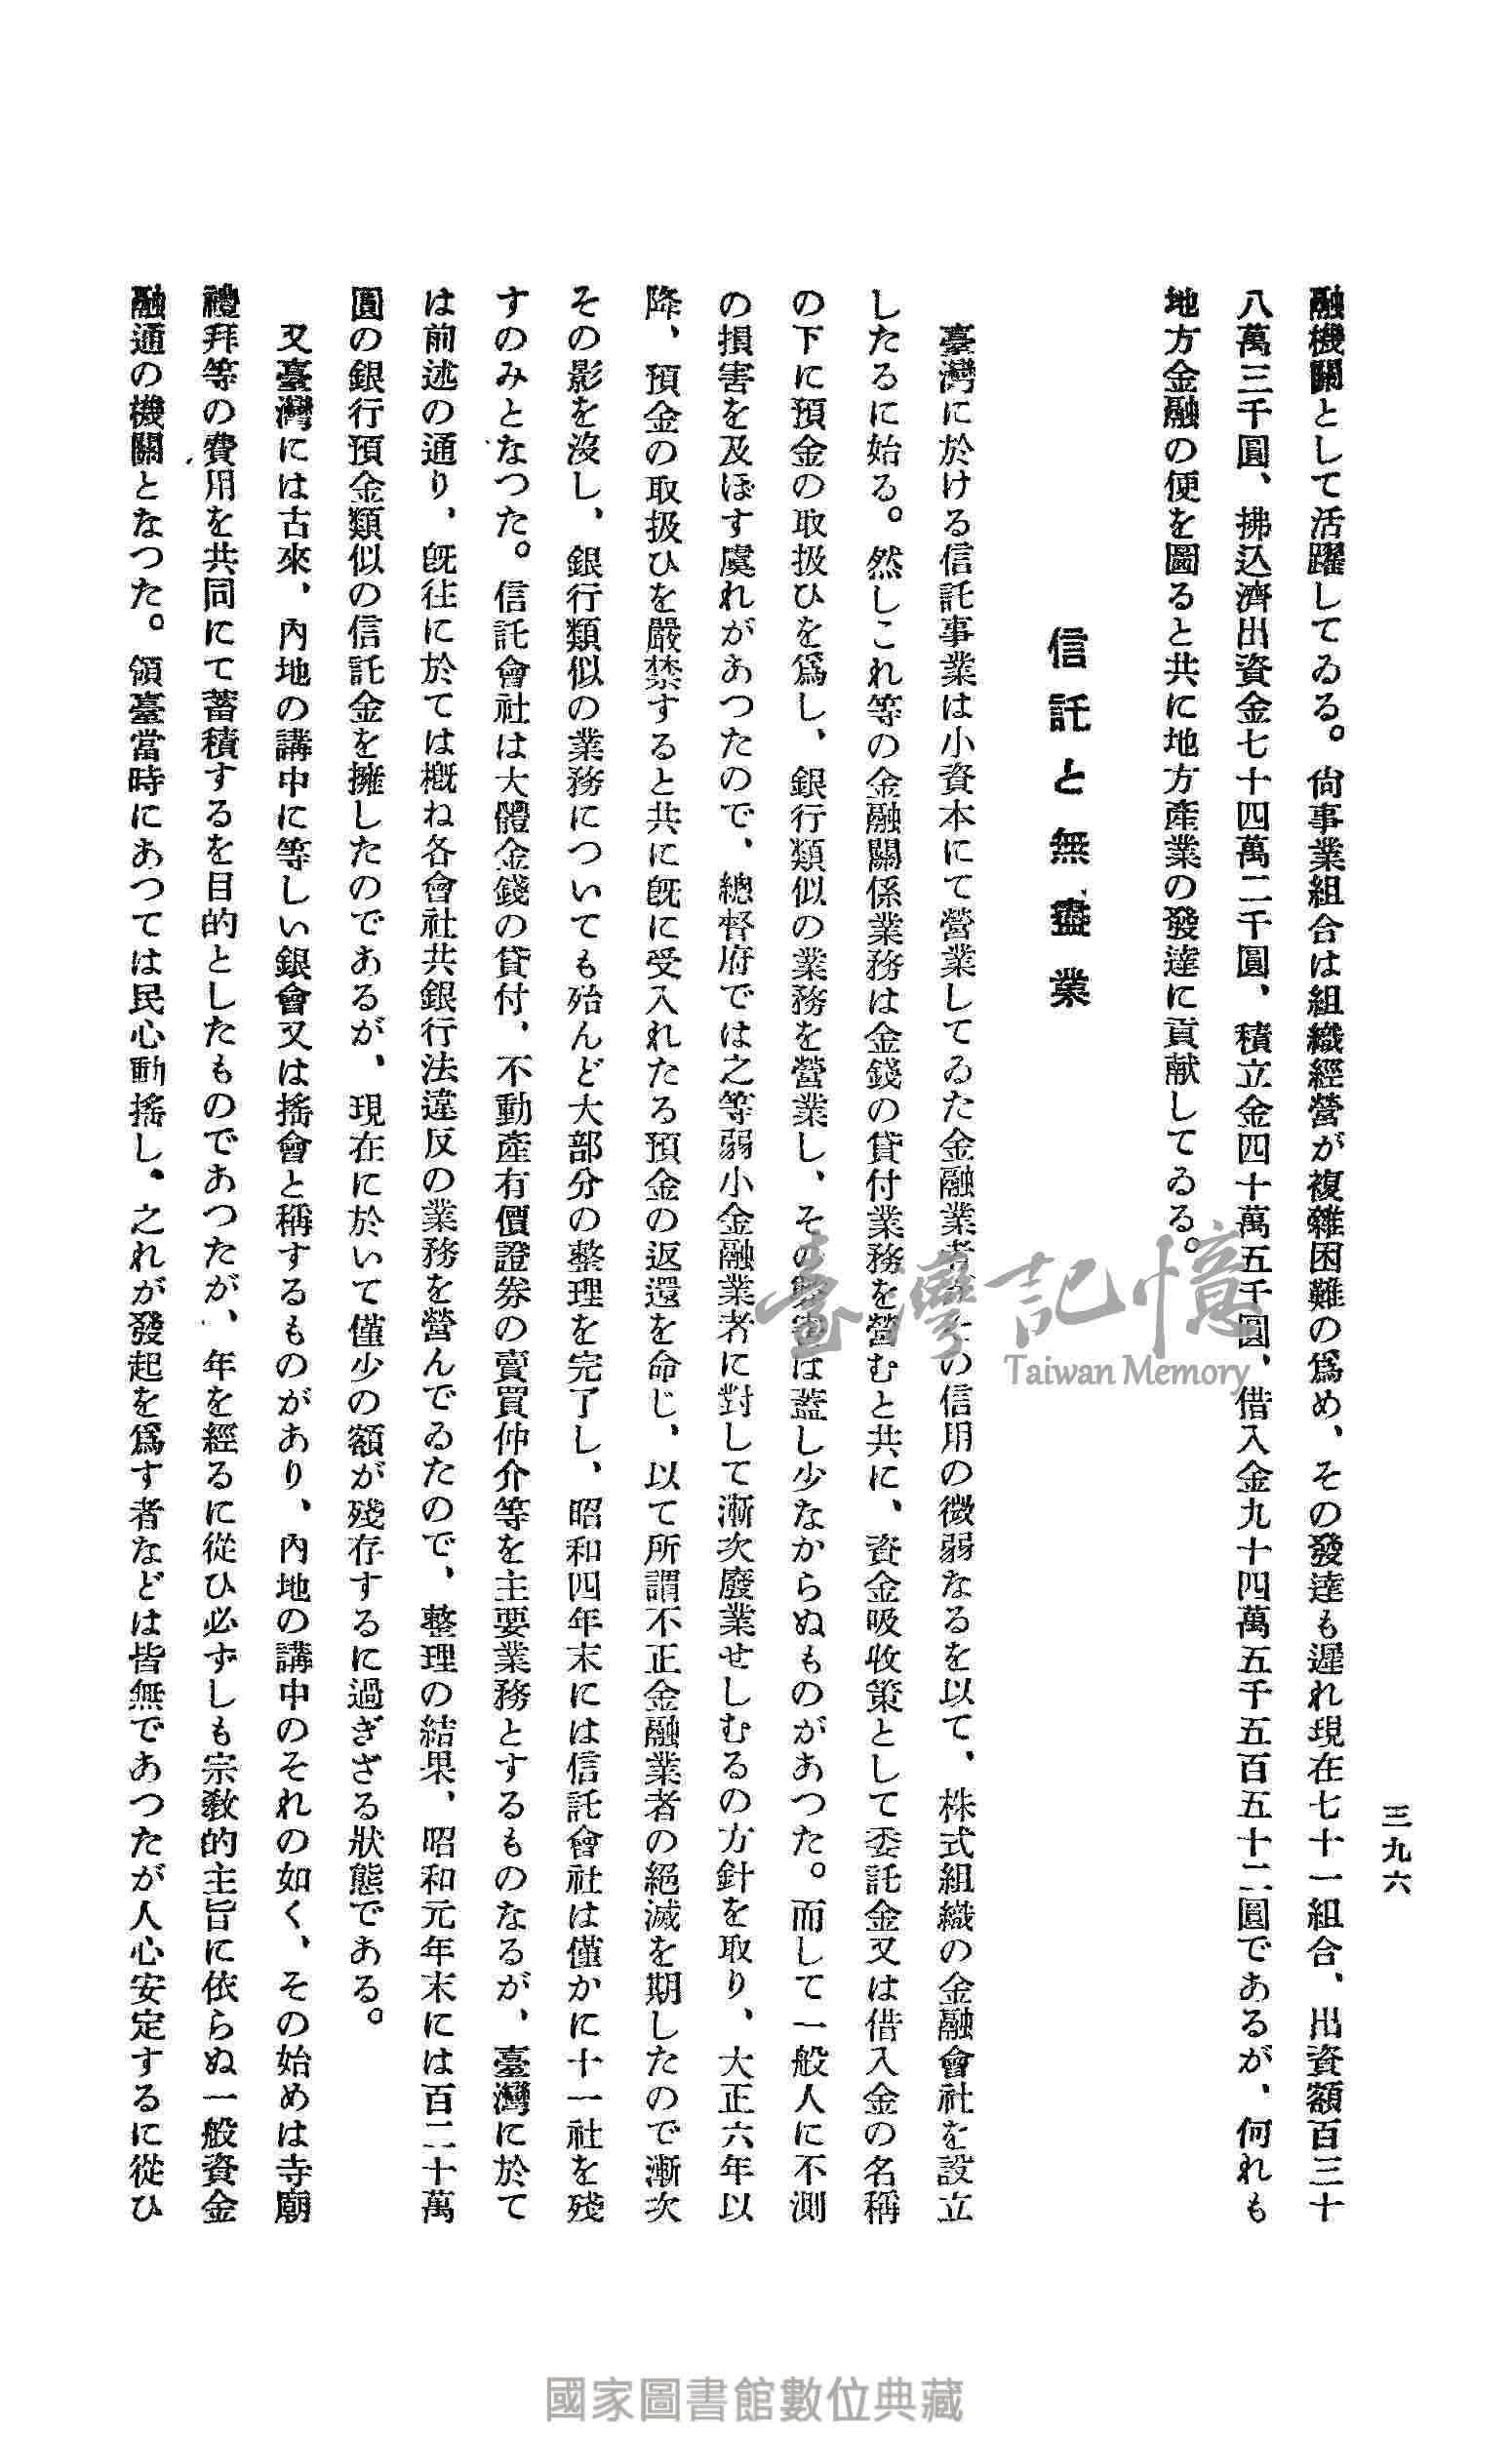 三九六
融機關として活躍してゐる。尙事業組合は組織經營が複雜困難の爲め、その發達も遲れ現在七十一組合、出資額百三十
八萬三千圓、拂込濟出資金七十四萬二千圓、積立金四十萬五千圓、借入金九十四萬五千五百五十二圓であるが、何れも
地方金融の便を圖ると共に地方產業の發達に貢献してゐる。
信託と無盡業
臺灣に於ける信託事業は小資本にて營業してゐた金融業者がその信用の微弱なるを以て、株式組織の金融會社を設立
したるに始る。然しこれ等の金融關係業務は金錢の貸付業務を營むと共に、資金吸收策として委託金又は借入金の名稱
の下に預金の取扱ひを爲し、銀行類似の業務を營業し、その弊害は蓋し少なからぬものがあつた。而して一般人に不測
の損害を及ぼす虞れがあつたので、總督府では之等弱小金融業者に對して漸次廢業せしむるの方針を取り、大正六年以
降、預金の取扱ひを嚴禁すると共に旣に受入れたる預金の返還を命じ、以て所謂不正金融業者の絕滅を期したので漸次
その影を沒し、銀行類似の業務についても殆んど大部分の整理を完了し、昭和四年末には信託會社は僅かに十一社を殘
すのみとなつた。信託會社は大體金錢の貸付、不動產有價證券の賣買仲介等を主要業務とするものなるが、臺灣に於て
は前述の通り、旣往に於ては槪ね各會社共銀行法違反の業務を營んでゐたので、整理の結果、昭和元年末には百二十萬
圓の銀行預金類似の信託金を擁したのであるが、現在に於いて僅少の額が殘存するに過ぎざる狀態である。
又臺灣には古來、內地の講中に等しい銀會又は搖會と稱するものがあり、內地の講中のそれの如く、その始めは寺廟
禮拜等の費用を共同にて蓄積するを目的としたものであつたが、年を經るに從ひ必ずしも宗敎的主旨に依らぬ一般資金
融通の機關となつた。領臺當時にあつては民心動搖し、之れが發起を爲す者などは皆無であつたが人心安定するに從ひ
臺灣記憶
Taiwan Memory
國家圖書館數位典藏